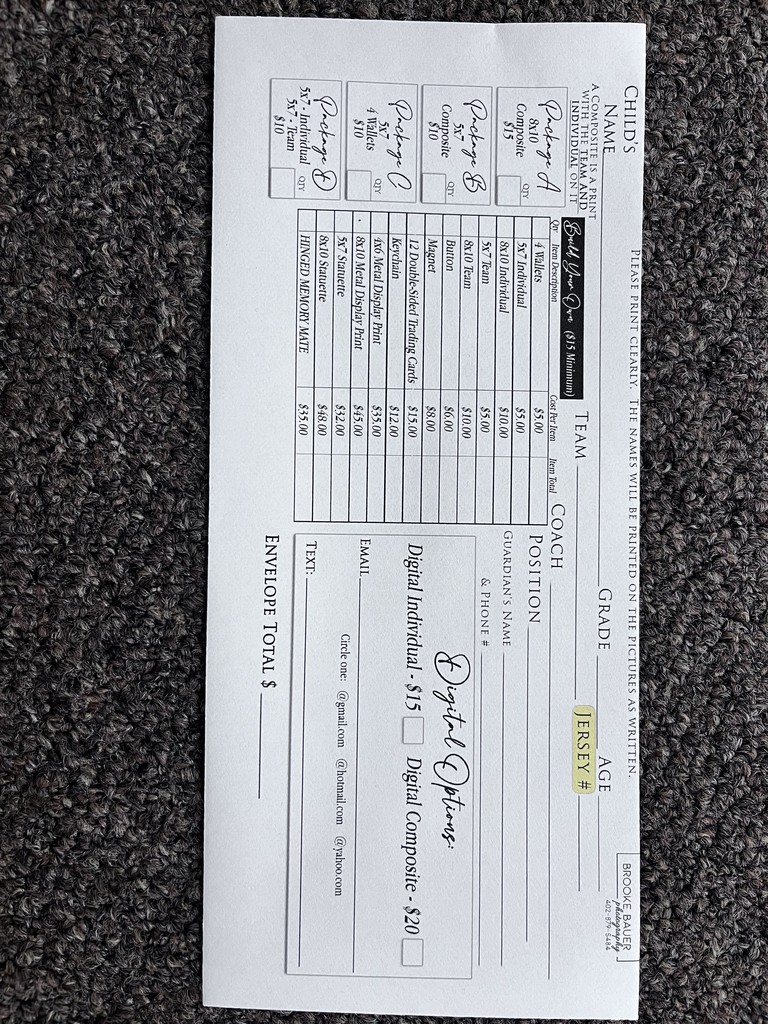 PLEASE PRINT CLEARLY. THE NAMES WILL BE PRINTED ON THE PICTURES AS WRITTEN.
BROOKE BAUER
photography
402-879-5484
CHILD'S
NAME
GRADE
AGE
A COMPOSITE IS A PRINT
WITH THE TEAM AND
INDIVIDUAL ON IT
TEAM
JERSEY #
Package A
8x10
Composite
$15
QTY
Package B
5x7
Composite
$10
QTY
Package C
5x7
4 Wallets
$10
QTY
Package D
5x7 - Individual
5x7 - Team
$10
QTY
Build Your Own ($15 Minimum)
Qty Item Description Cost Per Item Item Total
4 Wallets $5.00
5x7 Individual $5.00
8x10 Individual $10.00
5x7 Team $5.00
8x10 Team $10.00
Button $6.00
Magnet $8.00
12 Double-Sided Trading Cards $15.00
Keychain $12.00
4x6 Metal Display Print $35.00
8x10 Metal Display Print $45.00
5x7 Statuette $32.00
8x10 Statuette $48.00
HINGED MEMORY MATE $35.00
COACH
POSITION
GUARDIAN'S NAME
& PHONE #
Digital Options:
Digital Individual - $15 Digital Composite - $20
EMAIL
Circle one: @gmail.com @hotmail.com @yahoo.com
TEXT:
ENVELOPE TOTAL $